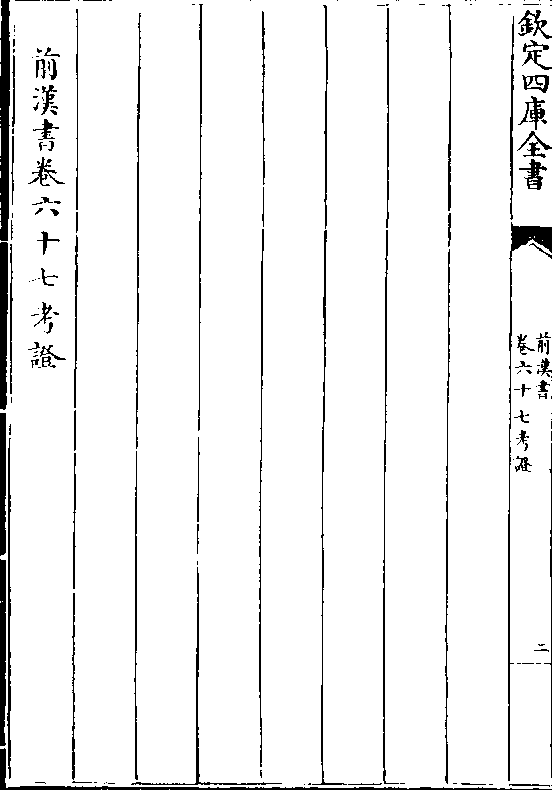 欽定四庫全書
前漢書
卷六十七考證
二
前漢書卷六十七考證